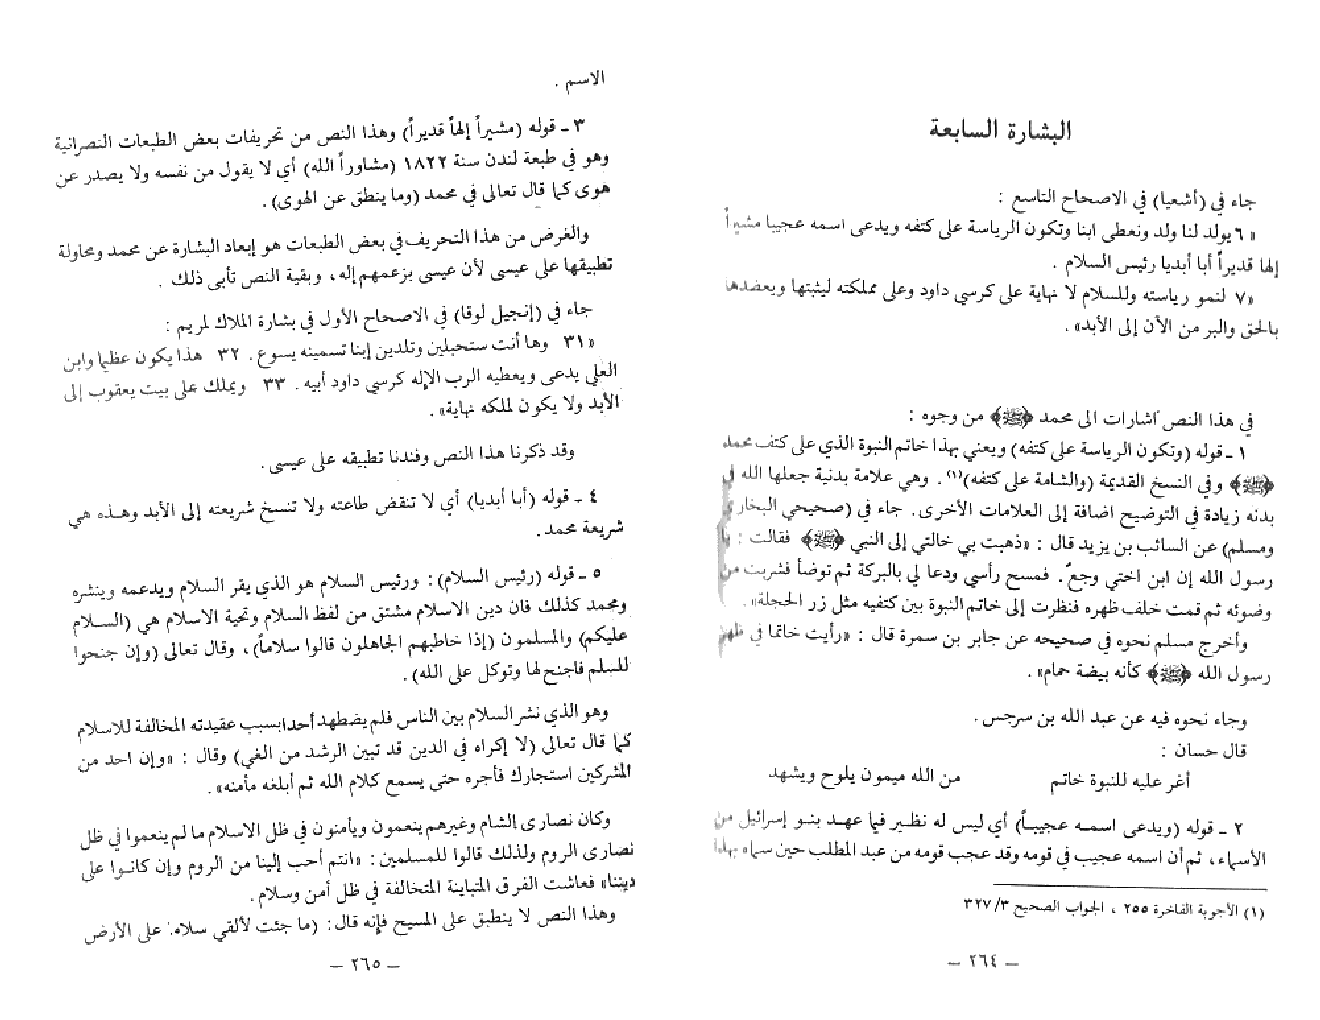 البشارة السابعة
جاء في (أشعيا) في الاصحاح التاسع :
« ٦ يولد لنا ولد ونعطى ابنا وتكون الرياسة على كتفه ويدعى اسمه عجيبا مشيراً
إلها قديراً أبا أبديا رئيس السلام .
«٧ لنمو رياسته وللسلام لا نهاية على كرسي داود وعلى مملكته ليثبتها ويعضدها
بالحق والبر من الآن إلى الأبد» .
في هذا النص اشارات الى محمد ﴿ﷺ﴾ من وجوه :
١ ـ قوله (وتكون الرياسة على كتفه) ويعني بهذا خاتم النبوة الذي على كتف محمد
﴿ﷺ﴾ وفي النسخ القديمة (والشامة على كتفه)(١) . وهي علامة بدنية جعلها الله في
بدنه زيادة في التوضيح اضافة إلى العلامات الأخرى . جاء في (صحيحي البخاري
ومسلم) عن السائب بن يزيد قال : «ذهبت بي خالتي إلى النبي ﴿ﷺ﴾ فقالت : يا
رسول الله إن ابن اختي وجعٌ . فمسح رأسي ودعا لي بالبركة ثم توضأ فشربت من
وضوئه ثم قمت خلف ظهره فنظرت إلى خاتم النبوة بين كتفيه مثل زر الحجلة» .
وأخرج مسلم نحوه في صحيحه عن جابر بن سمرة قال : «رأيت خاتما في ظهر
رسول الله ﴿ﷺ﴾ كأنه بيضة حمام» .
وجاء نحوه فيه عن عبد الله بن سرجس .
قال حسان :
أغر عليه للنبوة خاتم من الله ميمون يلوح ويشهد
٢ ـ قوله (ويدعى اسمه عجيباً) أي ليس له نظير فيما عهد بنو إسرائيل من
الأسماء ، ثم أن اسمه عجيب في قومه وقد عجب قومه من عبد المطلب حين سماه بهذا
(١) الأجوبة الفاخرة ٢٥٥ ، الجواب الصحيح ٣/ ٣٢٧
ــ ٢٦٤ ــ
الاسم .
٣ ـ قوله (مشيراً إلهاً قديراً) وهذا النص من تحريفات بعض الطبعات النصرانية
وهو في طبعة لندن سنة ١٨٢٢ (مشاوراً الله) أي لا يقول من نفسه ولا يصدر عن
هوى كما قال تعالى في محمد (وما ينطق عن الهوى) .
والغرض من هذا التحريف في بعض الطبعات هو إبعاد البشارة عن محمد ومحاولة
تطبيقها على عيسى لأن عيسى بزعمهم إله ، وبقية النص تأبى ذلك .
جاء في (إنجيل لوقا) في الاصحاح الأول في بشارة الملاك لمريم :
«٣١ وها أنت ستحبلين وتلدين إبنا تسمينه يسوع . ٣٢ هذا يكون عظيما وابن
العلي يدعى ويعطيه الرب الإله كرسي داود أبيه . ٣٣ ويملك على بيت يعقوب إلى
الأبد ولا يكون لملكه نهاية» .
وقد ذكرنا هذا النص وفندنا تطبيقه على عيسى .
٤ ـ قوله (أبا أبديا) أي لا تنقض طاعته ولا تنسخ شريعته إلى الأبد وهذه هي
شريعة محمد .
٥ ـ قوله (رئيس السلام) : ورئيس السلام هو الذي يقر السلام ويدعمه وينشره
ومحمد كذلك فان دين الاسلام مشتق من لفظ السلام وتحية الاسلام هي (السلام
عليكم) والمسلمون (إذا خاطبهم الجاهلون قالوا سلاماً) ، وقال تعالى (وإن جنحوا
للسلم فاجنح لها وتوكل على الله) .
وهو الذي نشر السلام بين الناس فلم يضطهد أحدا بسبب عقيدته المخالفة للاسلام
كما قال تعالى (لا إكراه في الدين قد تبين الرشد من الغي) وقال : «وإن احد من
المشركين استجارك فأجره حتى يسمع كلام الله ثم أبلغه مأمنه» .
وكان نصارى الشام وغيرهم ينعمون ويأمنون في ظل الاسلام ما لم ينعموا في ظل
نصارى الروم ولذلك قالوا للمسلمين : «انتم أحب إلينا من الروم وإن كانوا على
ديننا» فعاشت الفرق المتباينة المتخالفة في ظل أمن وسلام .
وهذا النص لا ينطبق على المسيح فإنه قال : (ما جئت لألقي سلاما على الأرض
ــ ٢٦٥ ــ